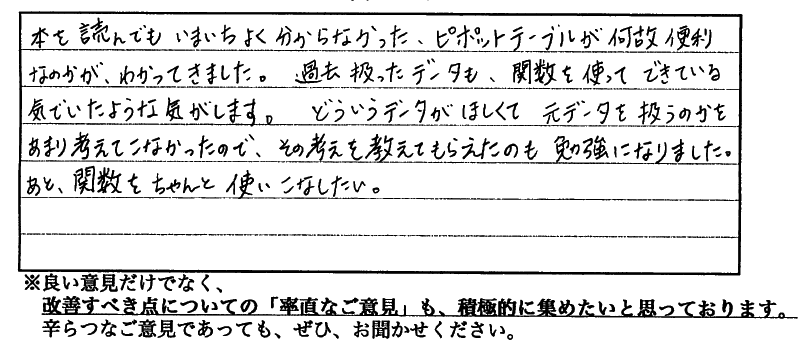 本を読んでもいまいちよく分からなかった、ピボットテーブルが何故便利
なのかが、わかってきました。 過去扱ったデータも、関数を使ってできている
気でいたような気がします。 どういうデータがほしくて元データを扱うのかを
あまり考えてこなかったので、その考えを教えてもらえたのも勉強になりました。
あと、関数をちゃんと使いこなしたい。
※良い意見だけでなく、
改善すべき点についての「率直なご意見」も、積極的に集めたいと思っております。
辛らつなご意見であっても、ぜひ、お聞かせください。